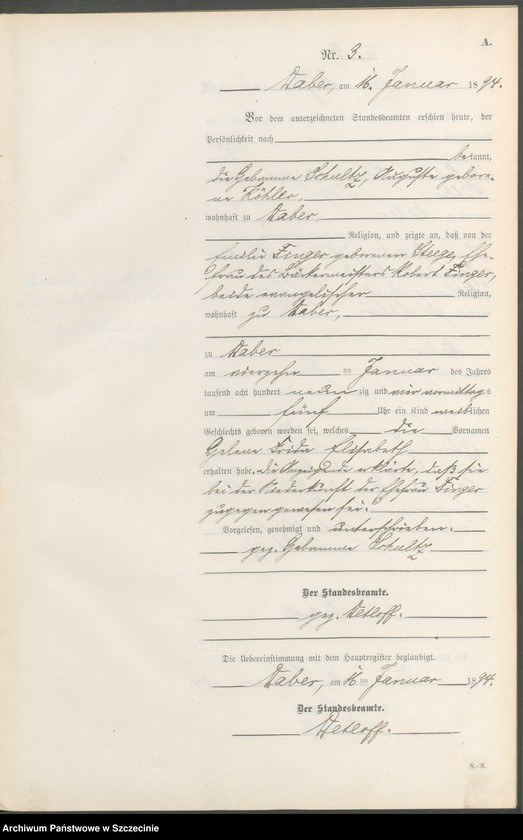 A.
Nr. 3.
Daber, am 16. Januar 1894.
Vor dem unterzeichneten Standesbeamten erschien heute, der
Persönlichkeit nach
bekannt,
die Hebamme Schultz, Auguste gebore-
ne Köhler,
wohnhaft zu Daber,
Religion, und zeigte an, daß von der
Emilie Finger geborenen Steege, Ehe-
frau des Bäckermeisters Robert Finger,
beide evangelischer Religion,
wohnhaft zu Daber,
zu Daber
am vierzehn ten Januar des Jahres
tausend acht hundert neun zig und vier vormittags
um fünf Uhr ein Kind weiblichen
Geschlechts geboren worden sei, welches die Vornamen
Helene Frida Elisabeth
erhalten habe. Die Anzeigende erklärte, daß sie
bei der Niederkunft der Ehefrau Finger
zugegen gewesen sei.
Vorgelesen, genehmigt und unterschrieben.
gez. Hebamme Schultz
Der Standesbeamte.
gez. Detloff.
Die Uebereinstimmung mit dem Hauptregister beglaubigt.
Daber, am 16 ten Januar 1894.
Der Standesbeamte.
Detloff.
Archiwum Państwowe w Szczecinie